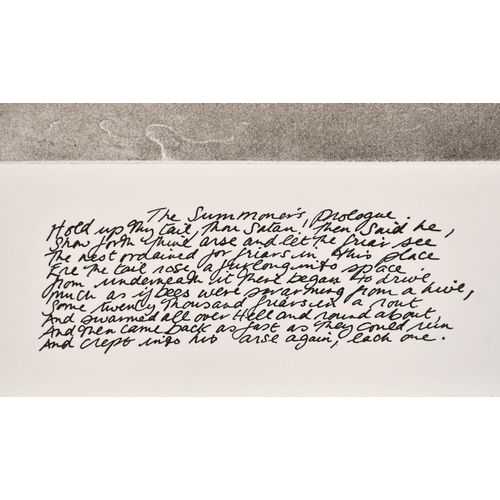 The Summoner's, prologue.
Hold up thy tail, thou Satan! then said he,
Show forth thine arse and let the friar see
The nest ordained for friars in this place
Ere the tail rose a furlong into space
From underneath it there began to drive
Much as if bees were swarming from a hive,
Some twenty thousand friars in a rout
And swarmed all over Hell and round about,
And then came back as fast as they could run
And crept into his arse again, each one.